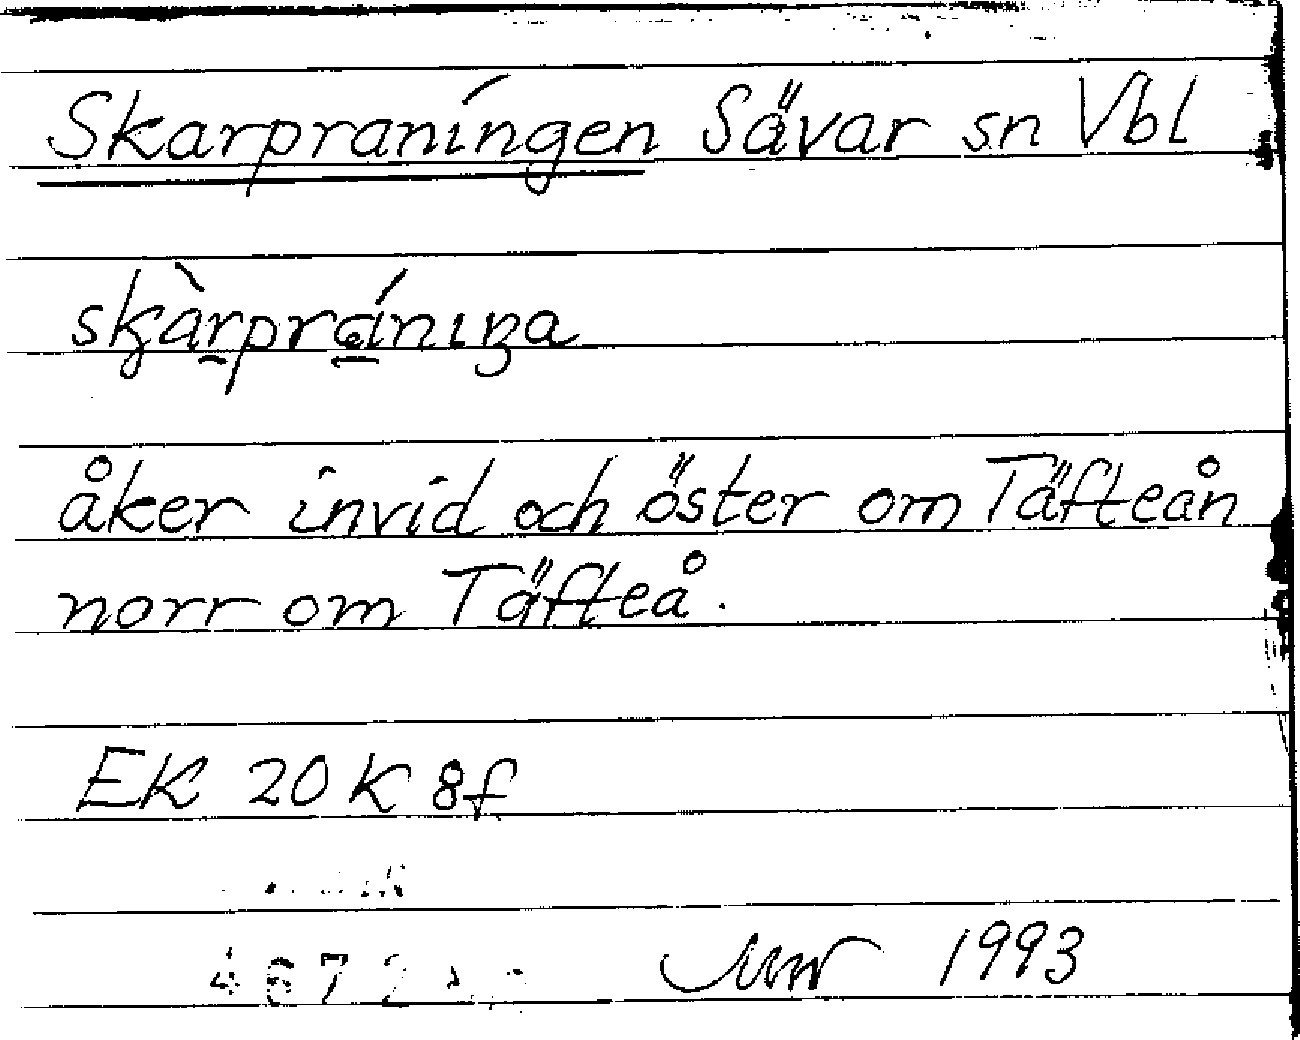 Skarpraníngen Sävar sn Vbl
skàrprániŋa
åker invid och öster om Täfteån
norr om Täfteå.
EK 20 K 8f
1993